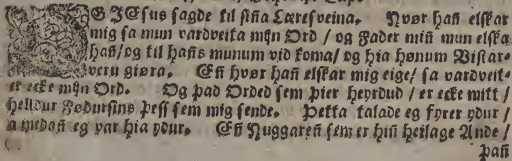 OG JEsus sagde til sin̄a Læresveina. Hvør han̄ elskar
mig sa mun vardveita mijn Ord / og Fader min̄ mun elska
han̄ / og til han̄s munum vid koma / og hia hønum Vistar-
veru giøra. En̄ hvør han̄ elskar mig eige / sa vardveit-
er ecke mijn Ord. Og þad Orded sem þier heyrdud / er ecke mitt /
helldur Fødursins þess sem mig sende. Þetta talade eg fyrer ydur /
a medan̄ eg var hia ydur. En̄ Huggaren̄ sem er hin̄ heilage Ande /
þan̄